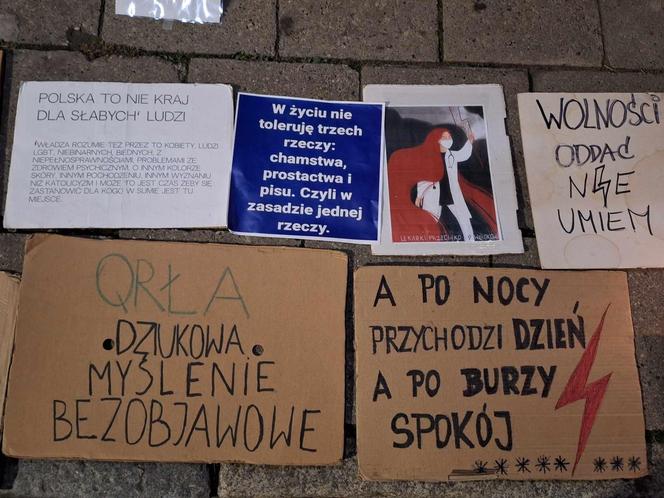 POLSKA TO NIE KRAJ
DLA SŁABYCH' LUDZI
'WŁADZA ROZUMIE TEŻ PRZEZ TO KOBIETY, LUDZI
LGBT, NIEBINARNYCH, BIEDNYCH, Z
NIEPEŁNOSPRAWNOŚCIAMI, PROBLEMAMI ZE
ZDROWIEM PSYCHICZNYM, O INNYM KOLORZE
SKÓRY, INNYM POCHODZENIU, INNYM WYZNANIU
NIŻ KATOLICYZM I MOŻE TO JEST CZAS ŻEBY SIĘ
ZASTANOWIĆ DLA KOGO W SUMIE JEST TU
MIEJSCE.
W życiu nie
toleruję trzech
rzeczy:
chamstwa,
prostactwa i
pisu. Czyli w
zasadzie jednej
rzeczy.
LEKARKI
WOLNOŚCI
ODDAĆ
NIE
UMIEM
ORŁA
DZIUKOWA
MYŚLENIE
BEZOBJAWOWE
A PO NOCY
PRZYCHODZI DZIEŃ
A PO BURZY
SPOKÓJ
***** ***